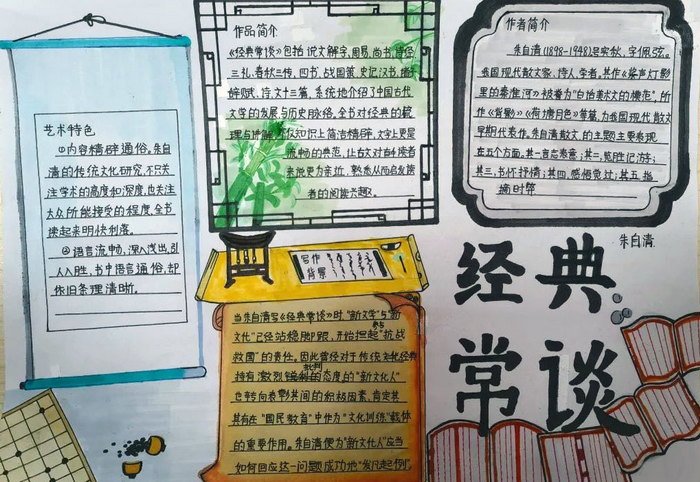 艺术特色
①内容精辟通俗。朱自
清的传统文化研究,不只关
注学术的高度和深度,也关注
大众所能接受的程度,全书
读起来明快利落。
②语言流畅,深入浅出,引
人入胜,书中语言通俗,却
依旧条理清晰。
作品简介
《经典常谈》包括说文解字,周易,尚书,诗经
三礼,春秋三传,四书,战国策,史记汉书,诸子
辞赋,诗,文十三篇,系统地介绍了中国古代
文学的发展与历史脉络。全书对经典的梳
理与讲解,不仅知识上简洁精辟,文字上更是
流畅的典范,让古文对白话读者
来说更为亲近,熟悉从而启发读
者的阅读兴趣。
作者简介
朱自清(1898-1948)号实秋,字佩弦。
我国现代散文家,诗人,学者,其作《桨声灯影
里的秦淮河》被誉为“白话美术文的模范”,所
作《背影》《荷塘月色》等篇,为我国现代散文
早期代表作。朱自清散文的主题主要表现
在五个方面。其一言志表意;其二,览胜记游;
其三,书怀抒情;其四,感悟觉过;其五,指
摘时弊
写作
背景
当朱自清写《经典常谈》时,“新文学”与“新
文化”已经站稳脚跟,开始担起“抗战
救国”的责任。因此曾经对于传统文化经典
持有激烈批判的态度的“新文化人”
也转向表彰其间的积极因素,肯定其
具有在“国民教育”中作为“文化训练”载体
的重要作用。朱自清便为“新文化人”应当
如何回应这一问题成功地“发凡起例”,
朱自清
经典
常谈